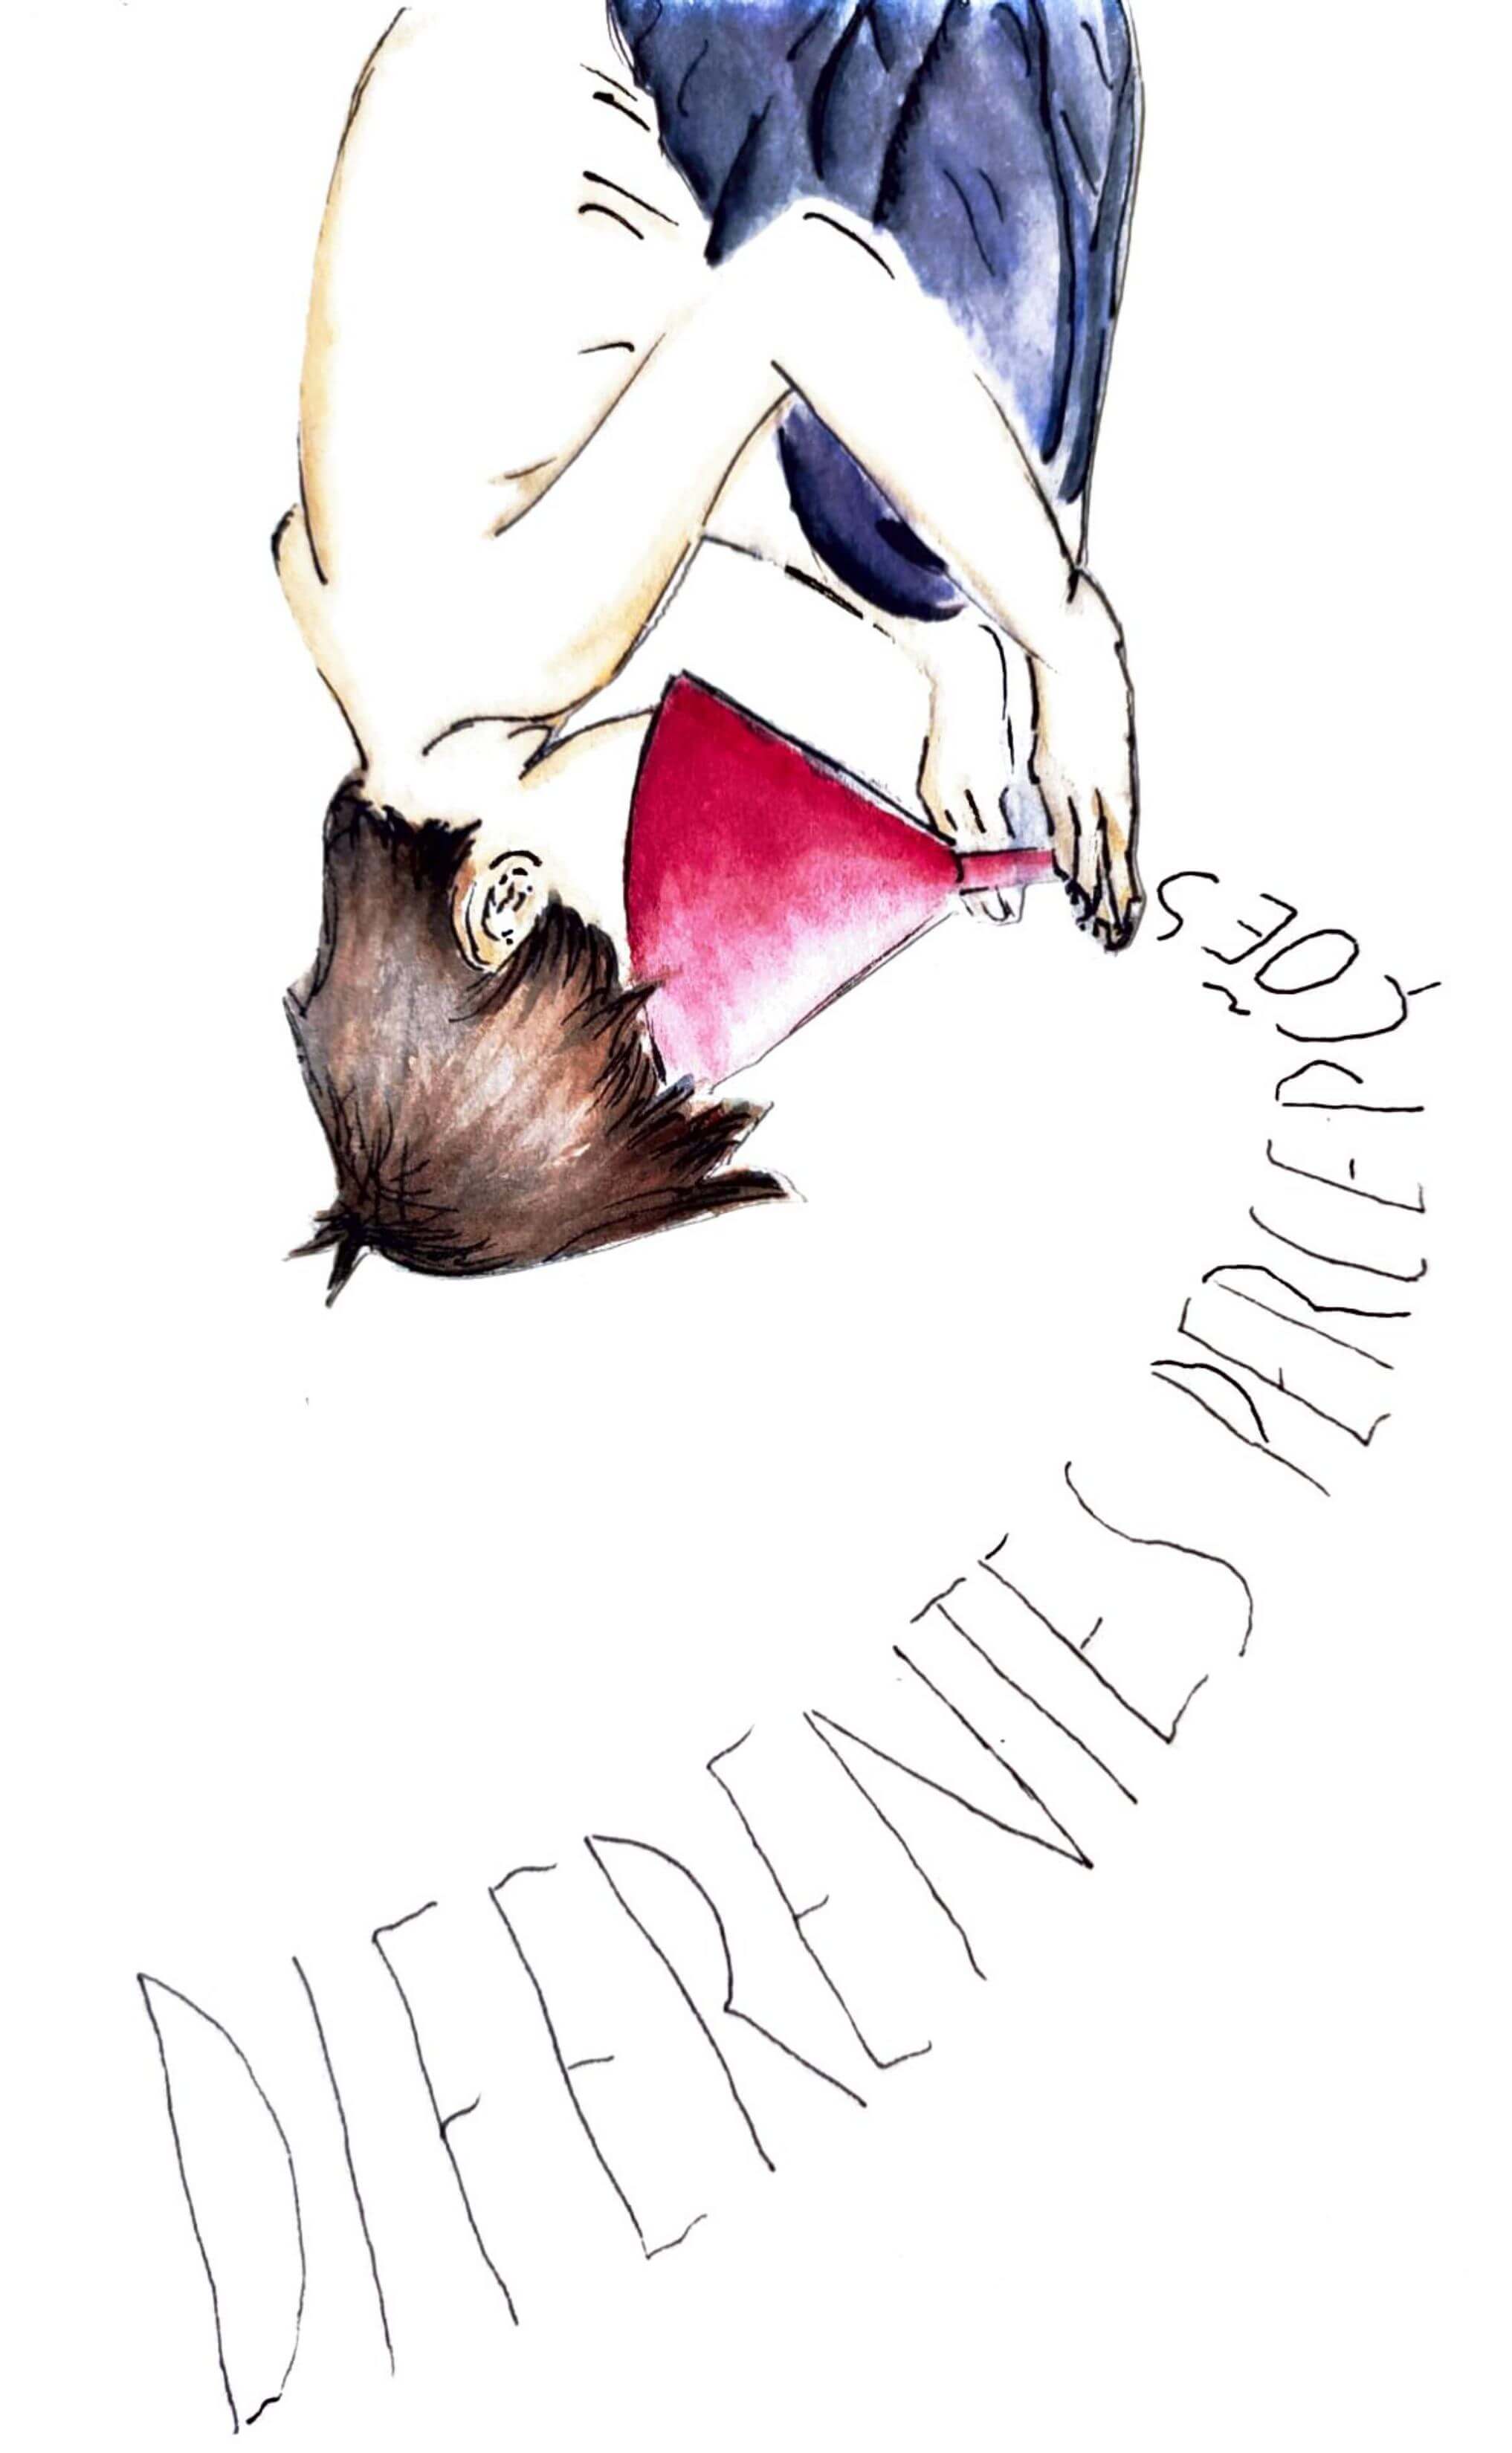 DIFERENTES PERCEPÇÕES